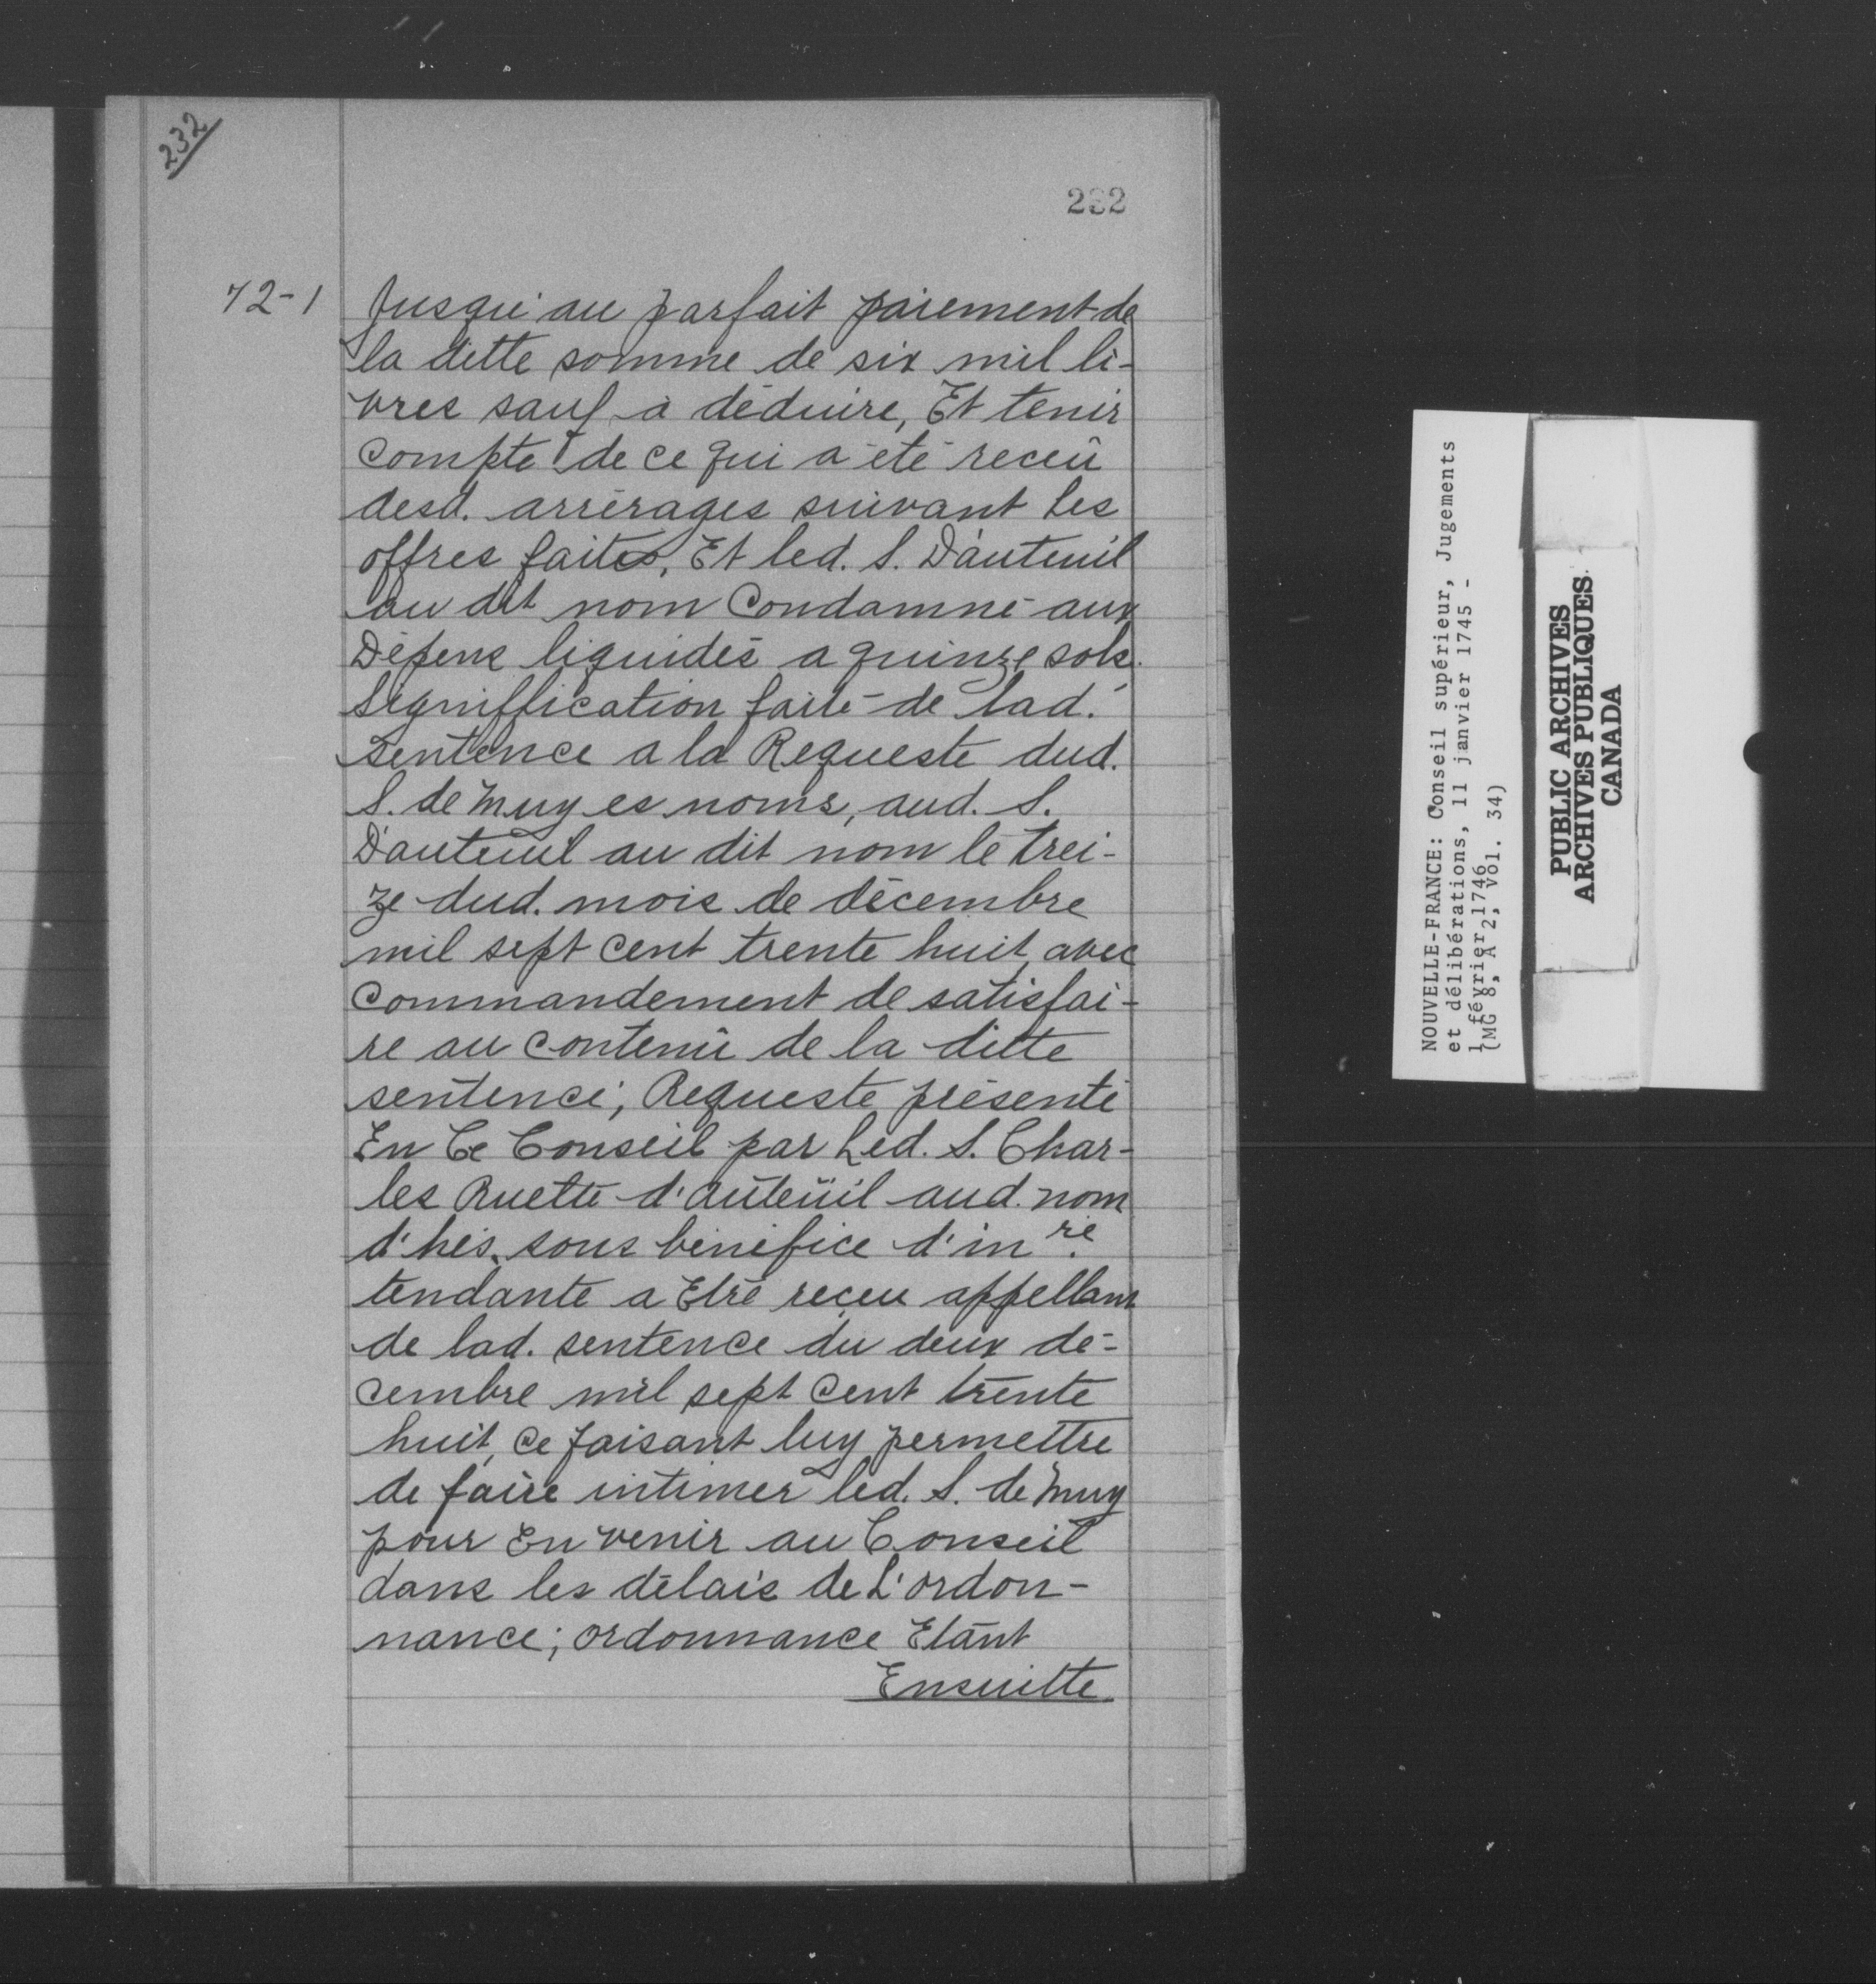 232
232
72-1
Jusqu'au parfait paiement de
la ditte somme de six mil li-
vres sauf à déduire, Et tenir
compte de ce qui a été receû
desd. arrérages suivant les
offres faites, Et led. S. D'auteuil
au dit nom Condamné aux
Dépens liquidés a quinze sols.
Signiffication faite de lad.
sentence a la Requeste dud.
S. de Muy es noms, aud. S.
D'auteuil au dit nom le trei-
ze dud. mois de décembre
mil sept cent trente huit, avec
commandement de satisfai-
re au contenû de la ditte
sentence; Requeste présenté
En Ce Conseil par Led. S. Char-
les Ruette d'auteüil aud. nom
d'hés. sous bénéfice d'in re.
tendante a Etre receu appellant
de lad. sentence du deux dé-
cembre mil sept cent trente
huit, ce faisant luy permettre
de faire intimer led. S. de Muy
pour En venir au Conseil
dans les délais de L'ordon-
nance; ordonnance Etant
Ensuitte
NOUVELLE-FRANCE: Conseil supérieur, Jugements
et délibérations, 11 janvier 1745 -
1 février 1746
(MG 8, A 2, vol. 34)
PUBLIC ARCHIVES
ARCHIVES PUBLIQUES
CANADA